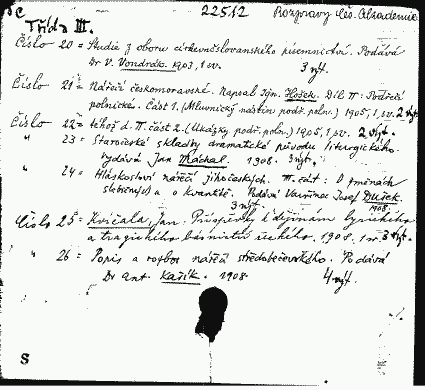 22512 Rozpravy Čes. Akademie
Třída III.
Číslo 20 = Studie z oboru církevněslovanského písemnictví. Podává
Dr V. Vondrák. 1903, 1 sv. 3 výt.
Číslo 21 = Nářečí českomoravské. Napsal Ign. Hošek. Díl II: Podřečí
polnické. Část 1. (Mluvnický nástin podř. poln.) 1905, 1 sv. 2 výt.
Číslo 22 = téhož d. II. část 2. (Ukázky podř. poln.) 1905, 1 sv. 2 výt.
23 = Staročeské skladby dramatické původu liturgického.
Vydává Jan Máchal. 1908. 3 výt.
" 24 = Hláskosloví nářečí jihočeských. III. část: O změnách
a o kvantitě. Podává Vavřinec Josef Dušek.
1908.
3 výt.
Číslo 25 = Kvíčala, Jan. Příspěvky k dějinám lyrického
a tragického básnictví řeckého. 1908. 1 sv. 3 výt.
" 26 = Popis a rozbor nářečí středobečevského. Podává
Dr Ant. Kašík. 1908. 4 výt.
S